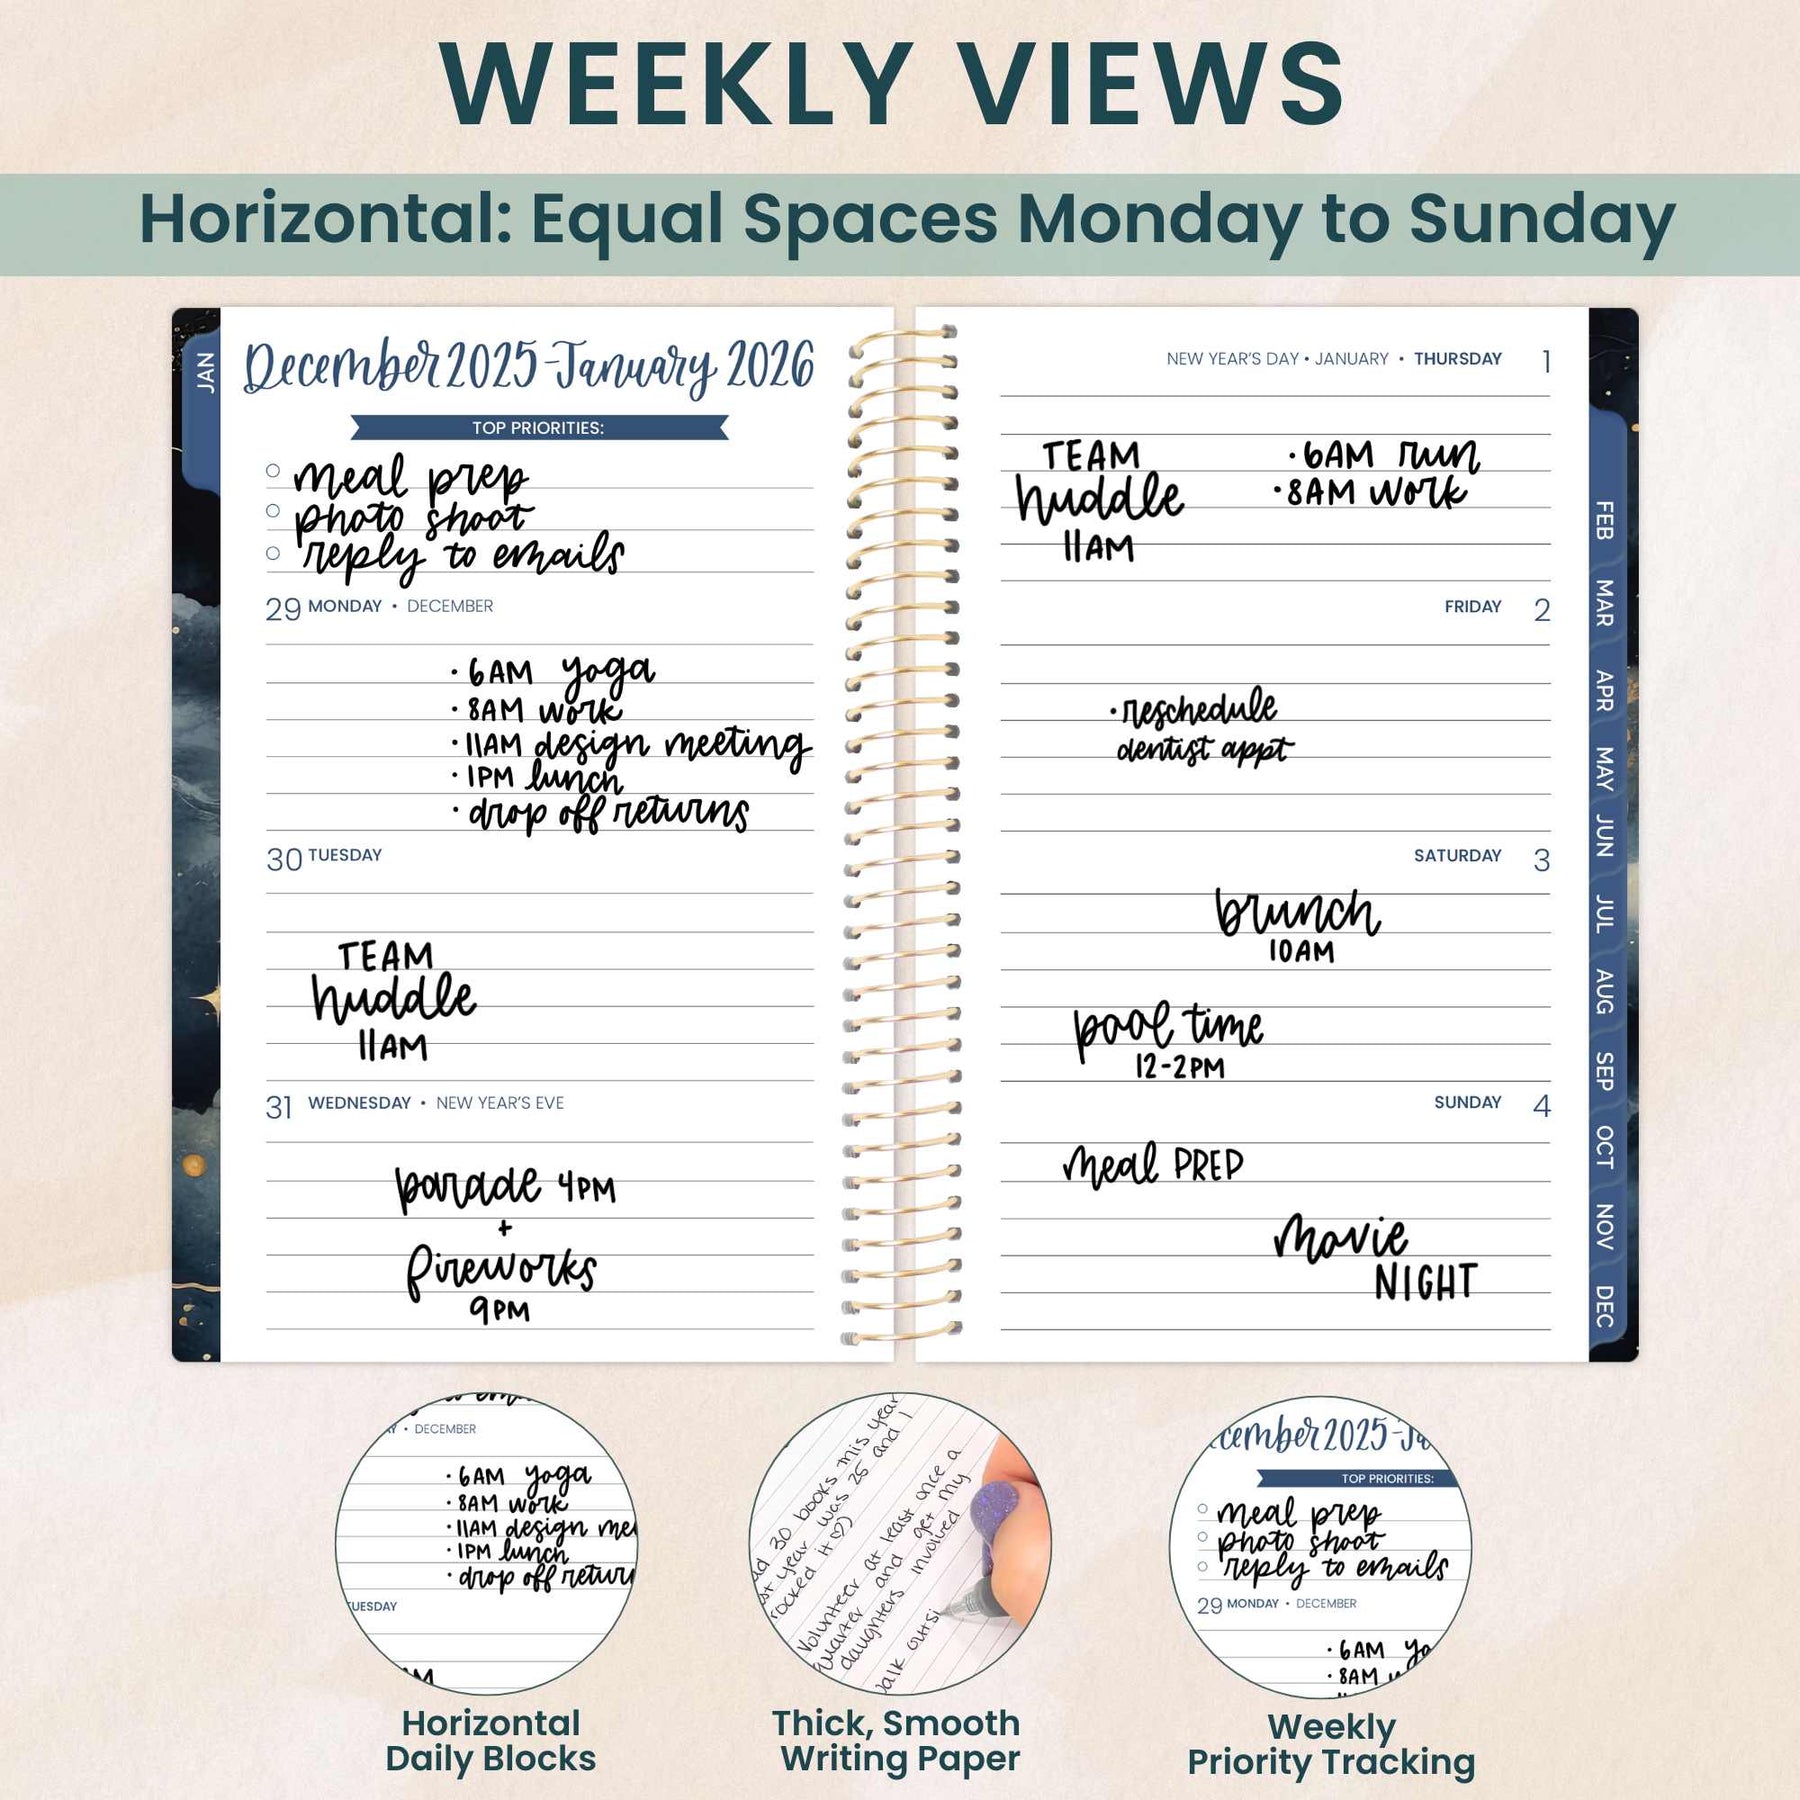 WEEKLY VIEWS
Horizontal: Equal Spaces Monday to Sunday
JAN
December 2025-January 2026
TOP PRIORITIES:
meal prep
photo shoot
reply to emails
29 MONDAY • DECEMBER
• 6AM yoga
• 8AM work
• 11AM design meeting
• 1PM lunch
• drop off returns
30 TUESDAY
TEAM
huddle
11AM
31 WEDNESDAY • NEW YEAR'S EVE
parade 4PM
+
fireworks
9PM
NEW YEAR'S DAY • JANUARY • THURSDAY 1
TEAM
huddle
11AM
• 6AM run
• 8AM work
FRIDAY 2
• reschedule
dentist appt
SATURDAY 3
brunch
10AM
pool time
12-2PM
SUNDAY 4
meal PREP
movie
NIGHT
FEB
MAR
APR
MAY
JUN
JUL
AUG
SEP
OCT
NOV
DEC
• DECEMBER
• 6AM yoga
• 8AM work
• 11AM design
• 1PM lunch
• drop off
Horizontal
Daily Blocks
30 books this year
year was 25 and I
rocked it ♡)
Volunteer at least once a
quarter and get my
daughters involved
Thick, Smooth
Writing Paper
2025
TOP PRIORITIES:
meal prep
photo shoot
reply to emails
29 MONDAY • DECEMBER
• 6AM
• 8AM
Weekly
Priority Tracking